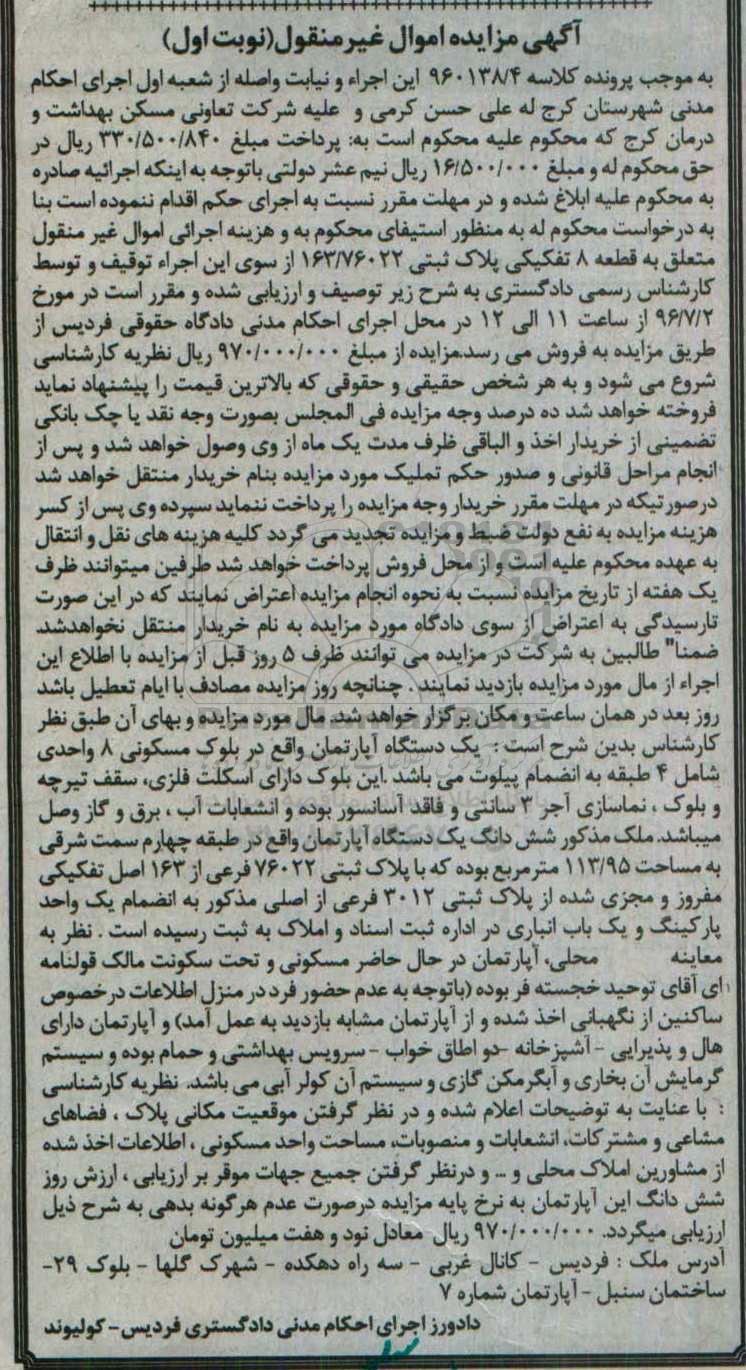 آگهی مزایده اموال غیرمنقول(نوبت اول)
به موجب پرونده کلاسه ۹۶۰۱۳۸/۴ این اجراء و نیابت واصله از شعبه اول اجرای احکام
مدنی شهرستان کرج له علی حسن کرمی و علیه شرکت تعاونی مسکن بهداشت و
درمان کرج که محکوم علیه محکوم است به: پرداخت مبلغ ۳۳۰/۵۰۰/۸۴۰ ریال در
حق محکوم له و مبلغ ۱۶/۵۰۰/۰۰۰ ریال نیم عشر دولتی باتوجه به اینکه اجرائیه صادره
به محکوم علیه ابلاغ شده و در مهلت مقرر نسبت به اجرای حکم اقدام ننموده است بنا
به درخواست محکوم له به منظور استیفای محکوم به و هزینه اجرائی اموال غیر منقول
متعلق به قطعه ۸ تفکیکی پلاک ثبتی ۱۶۳/۷۶۰۲۲ از سوی این اجراء توقیف و توسط
کارشناس رسمی دادگستری به شرح زیر توصیف و ارزیابی شده و مقرر است در مورخ
۹۶/۷/۲ از ساعت ۱۱ الی ۱۲ در محل اجرای احکام مدنی دادگاه حقوقی فردیس از
طریق مزایده به فروش می رسد.مزایده از مبلغ ۹۷۰/۰۰۰/۰۰۰ ریال نظریه کارشناسی
شروع می شود و به هر شخص حقیقی و حقوقی که بالاترین قیمت را پیشنهاد نماید
فروخته خواهد شد ده درصد وجه مزایده فی المجلس بصورت وجه نقد یا چک بانکی
تضمینی از خریدار اخذ و الباقی ظرف مدت یک ماه از وی وصول خواهد شد و پس از
انجام مراحل قانونی و صدور حکم تملیک مورد مزایده بنام خریدار منتقل خواهد شد
درصورتیکه در مهلت مقرر خریدار وجه مزایده را پرداخت ننماید سپرده وی پس از کسر
هزینه مزایده به نفع دولت ضبط و مزایده تجدید می گردد کلیه هزینه های نقل و انتقال
به عهده محکوم علیه است و از محل فروش پرداخت خواهد شد طرفین میتوانند ظرف
یک هفته از تاریخ مزایده نسبت به نحوه انجام مزایده اعتراض نمایند که در این صورت
تارسیدگی به اعتراض از سوی دادگاه مورد مزایده به نام خریدار منتقل نخواهدشد.
ضمنا" طالبین به شرکت در مزایده می توانند ظرف ۵ روز قبل از مزایده با اطلاع این
اجراء از مال مورد مزایده بازدید نمایند . چنانچه روز مزایده مصادف با ایام تعطیل باشد
روز بعد در همان ساعت و مکان برگزار خواهد شد. مال مورد مزایده و بهای آن طبق نظر
کارشناس بدین شرح است : یک دستگاه آپارتمان واقع در بلوک مسکونی ۸ واحدی
شامل ۴ طبقه به انضمام پیلوت می باشد .این بلوک دارای اسکلت فلزی، سقف تیرچه
و بلوک ، نماسازی آجر ۳ سانتی و فاقد آسانسور بوده و انشعابات آب ، برق و گاز وصل
میباشد. ملک مذکور شش دانگ یک دستگاه آپارتمان واقع در طبقه چهارم سمت شرقی
به مساحت ۱۱۳/۹۵ مترمربع بوده که با پلاک ثبتی ۷۶۰۲۲ فرعی از ۱۶۳ اصل تفکیکی
مفروز و مجزی شده از پلاک ثبتی ۳۰۱۲ فرعی از اصلی مذکور به انضمام یک واحد
پارکینگ و یک باب انباری در اداره ثبت اسناد و املاک به ثبت رسیده است . نظر به
معاینه محلی، آپارتمان در حال حاضر مسکونی و تحت سکونت مالک قولنامه
ای آقای توحید خجسته فر بوده (باتوجه به عدم حضور فرد در منزل اطلاعات درخصوص
ساکنین از نگهبانی اخذ شده و از آپارتمان مشابه بازدید به عمل آمد) و آپارتمان دارای
هال و پذیرایی - آشپزخانه -دو اطاق خواب - سرویس بهداشتی و حمام بوده و سیستم
گرمایش آن بخاری و آبگرمکن گازی و سیستم آن کولر آبی می باشد. نظریه کارشناسی
: با عنایت به توضیحات اعلام شده و در نظر گرفتن موقعیت مکانی پلاک ، فضاهای
مشاعی و مشترکات، انشعابات و منصوبات، مساحت واحد مسکونی ، اطلاعات اخذ شده
از مشاورین املاک محلی و ... و درنظر گرفتن جمیع جهات موقر بر ارزیابی ، ارزش روز
شش دانگ این آپارتمان به نرخ پایه مزایده درصورت عدم هرگونه بدهی به شرح ذیل
ارزیابی میگردد. ۹۷۰/۰۰۰/۰۰۰ ریال معادل نود و هفت میلیون تومان
آدرس ملک : فردیس - کانال غربی - سه راه دهکده - شهرک گلها - بلوک ۲۹-
ساختمان سنبل - آپارتمان شماره ۷
دادورز اجرای احکام مدنی دادگستری فردیس- کولیوند